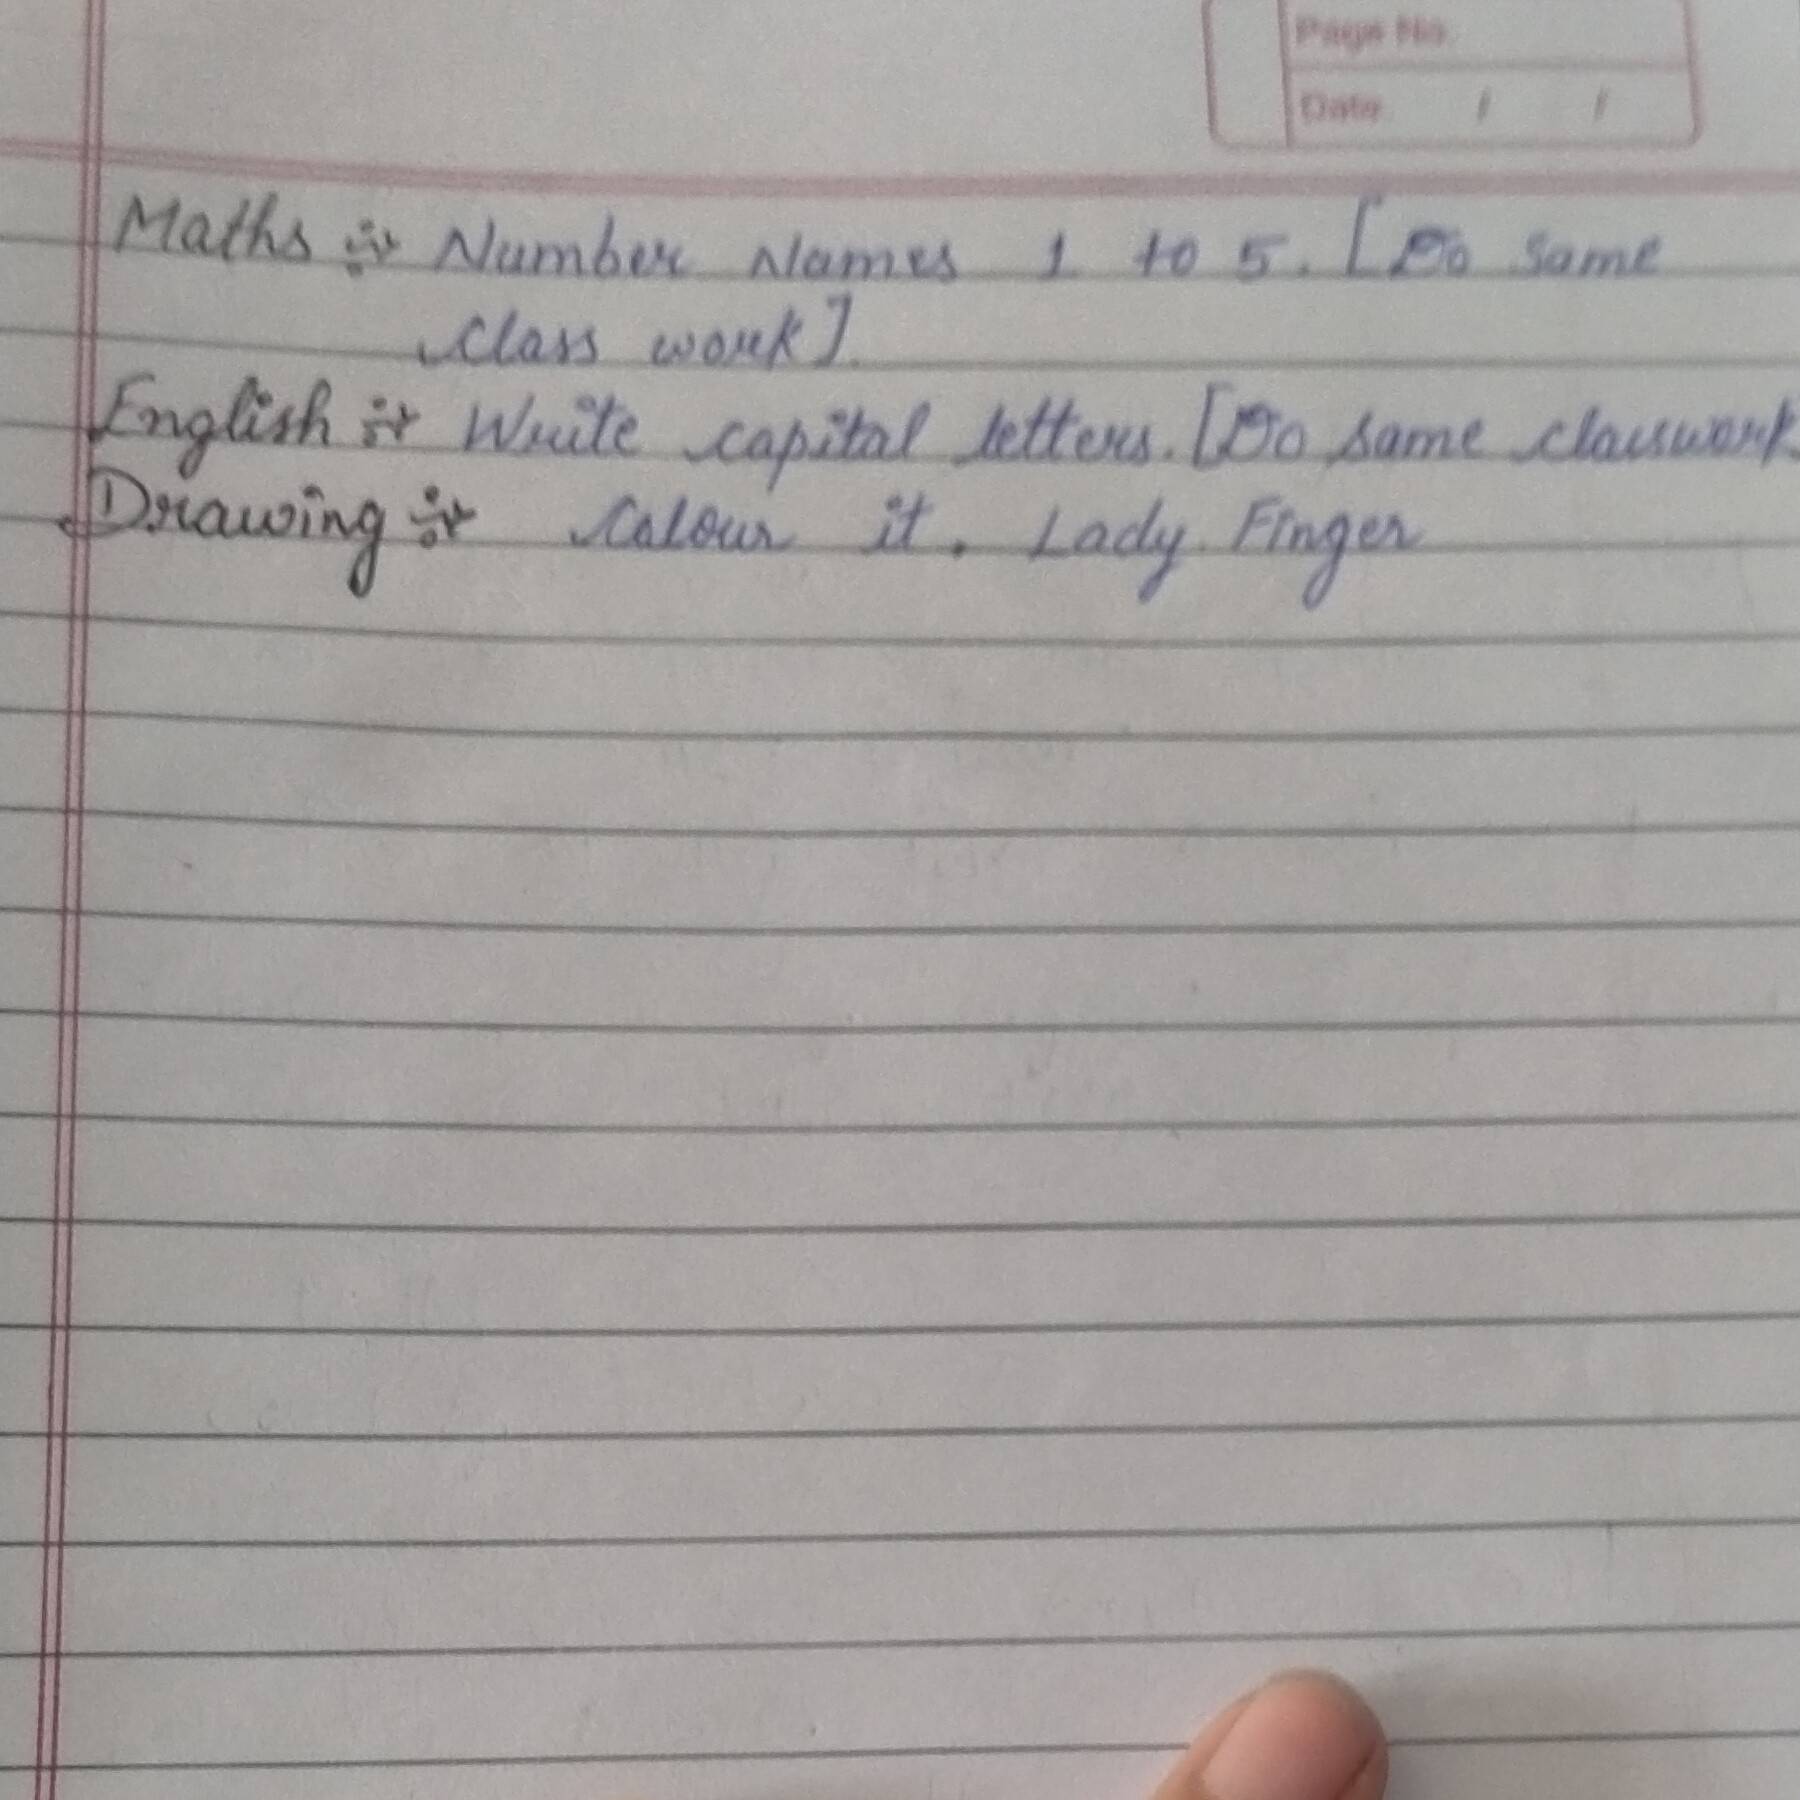 Page No.
Date / /
Maths :- Number Names 1 to 5. [Do same
class work].
English :- Write capital letters. [Do same classwork
Drawing :- Colour it. Lady Finger